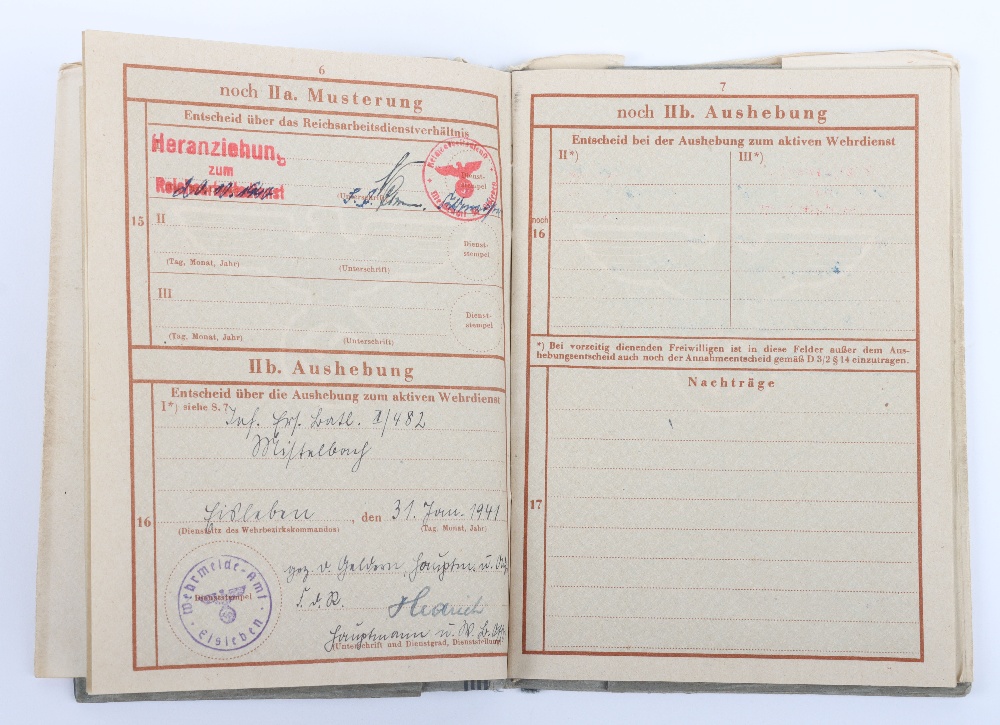 6
noch IIa. Musterung
Entscheid über das Reichsarbeitsdienstverhältnis
Heranziehung
zum
Reichsarbeitsdienst
(Unterschrift)
Dienst-
stempel
15
II
(Tag, Monat, Jahr)
(Unterschrift)
Dienst-
stempel
III
(Tag, Monat, Jahr)
(Unterschrift)
Dienst-
stempel
IIb. Aushebung
Entscheid über die Aushebung zum aktiven Wehrdienst
I*) siehe S. 7
Inf. Ers. Batl. I/482
Mistelbach
16
Eisleben, den 31. Jan. 1941
(Dienstsitz des Wehrbezirkskommandos)
(Tag, Monat, Jahr)
gez. v Geldern, Hauptm. u.
Dienststempel
Wehrmelde-Amt
Eisleben
F. d. R.
Hedrich
Hauptmann u. W. B. Offz.
(Unterschrift und Dienstgrad, Dienststellung)
7
noch IIb. Aushebung
Entscheid bei der Aushebung zum aktiven Wehrdienst
II*)
III*)
noch
16
*) Bei vorzeitig dienenden Freiwilligen ist in diese Felder außer dem Aus-
hebungsentscheid auch noch der Annahmeentscheid gemäß D 3/2 § 14 einzutragen.
Nachträge
17